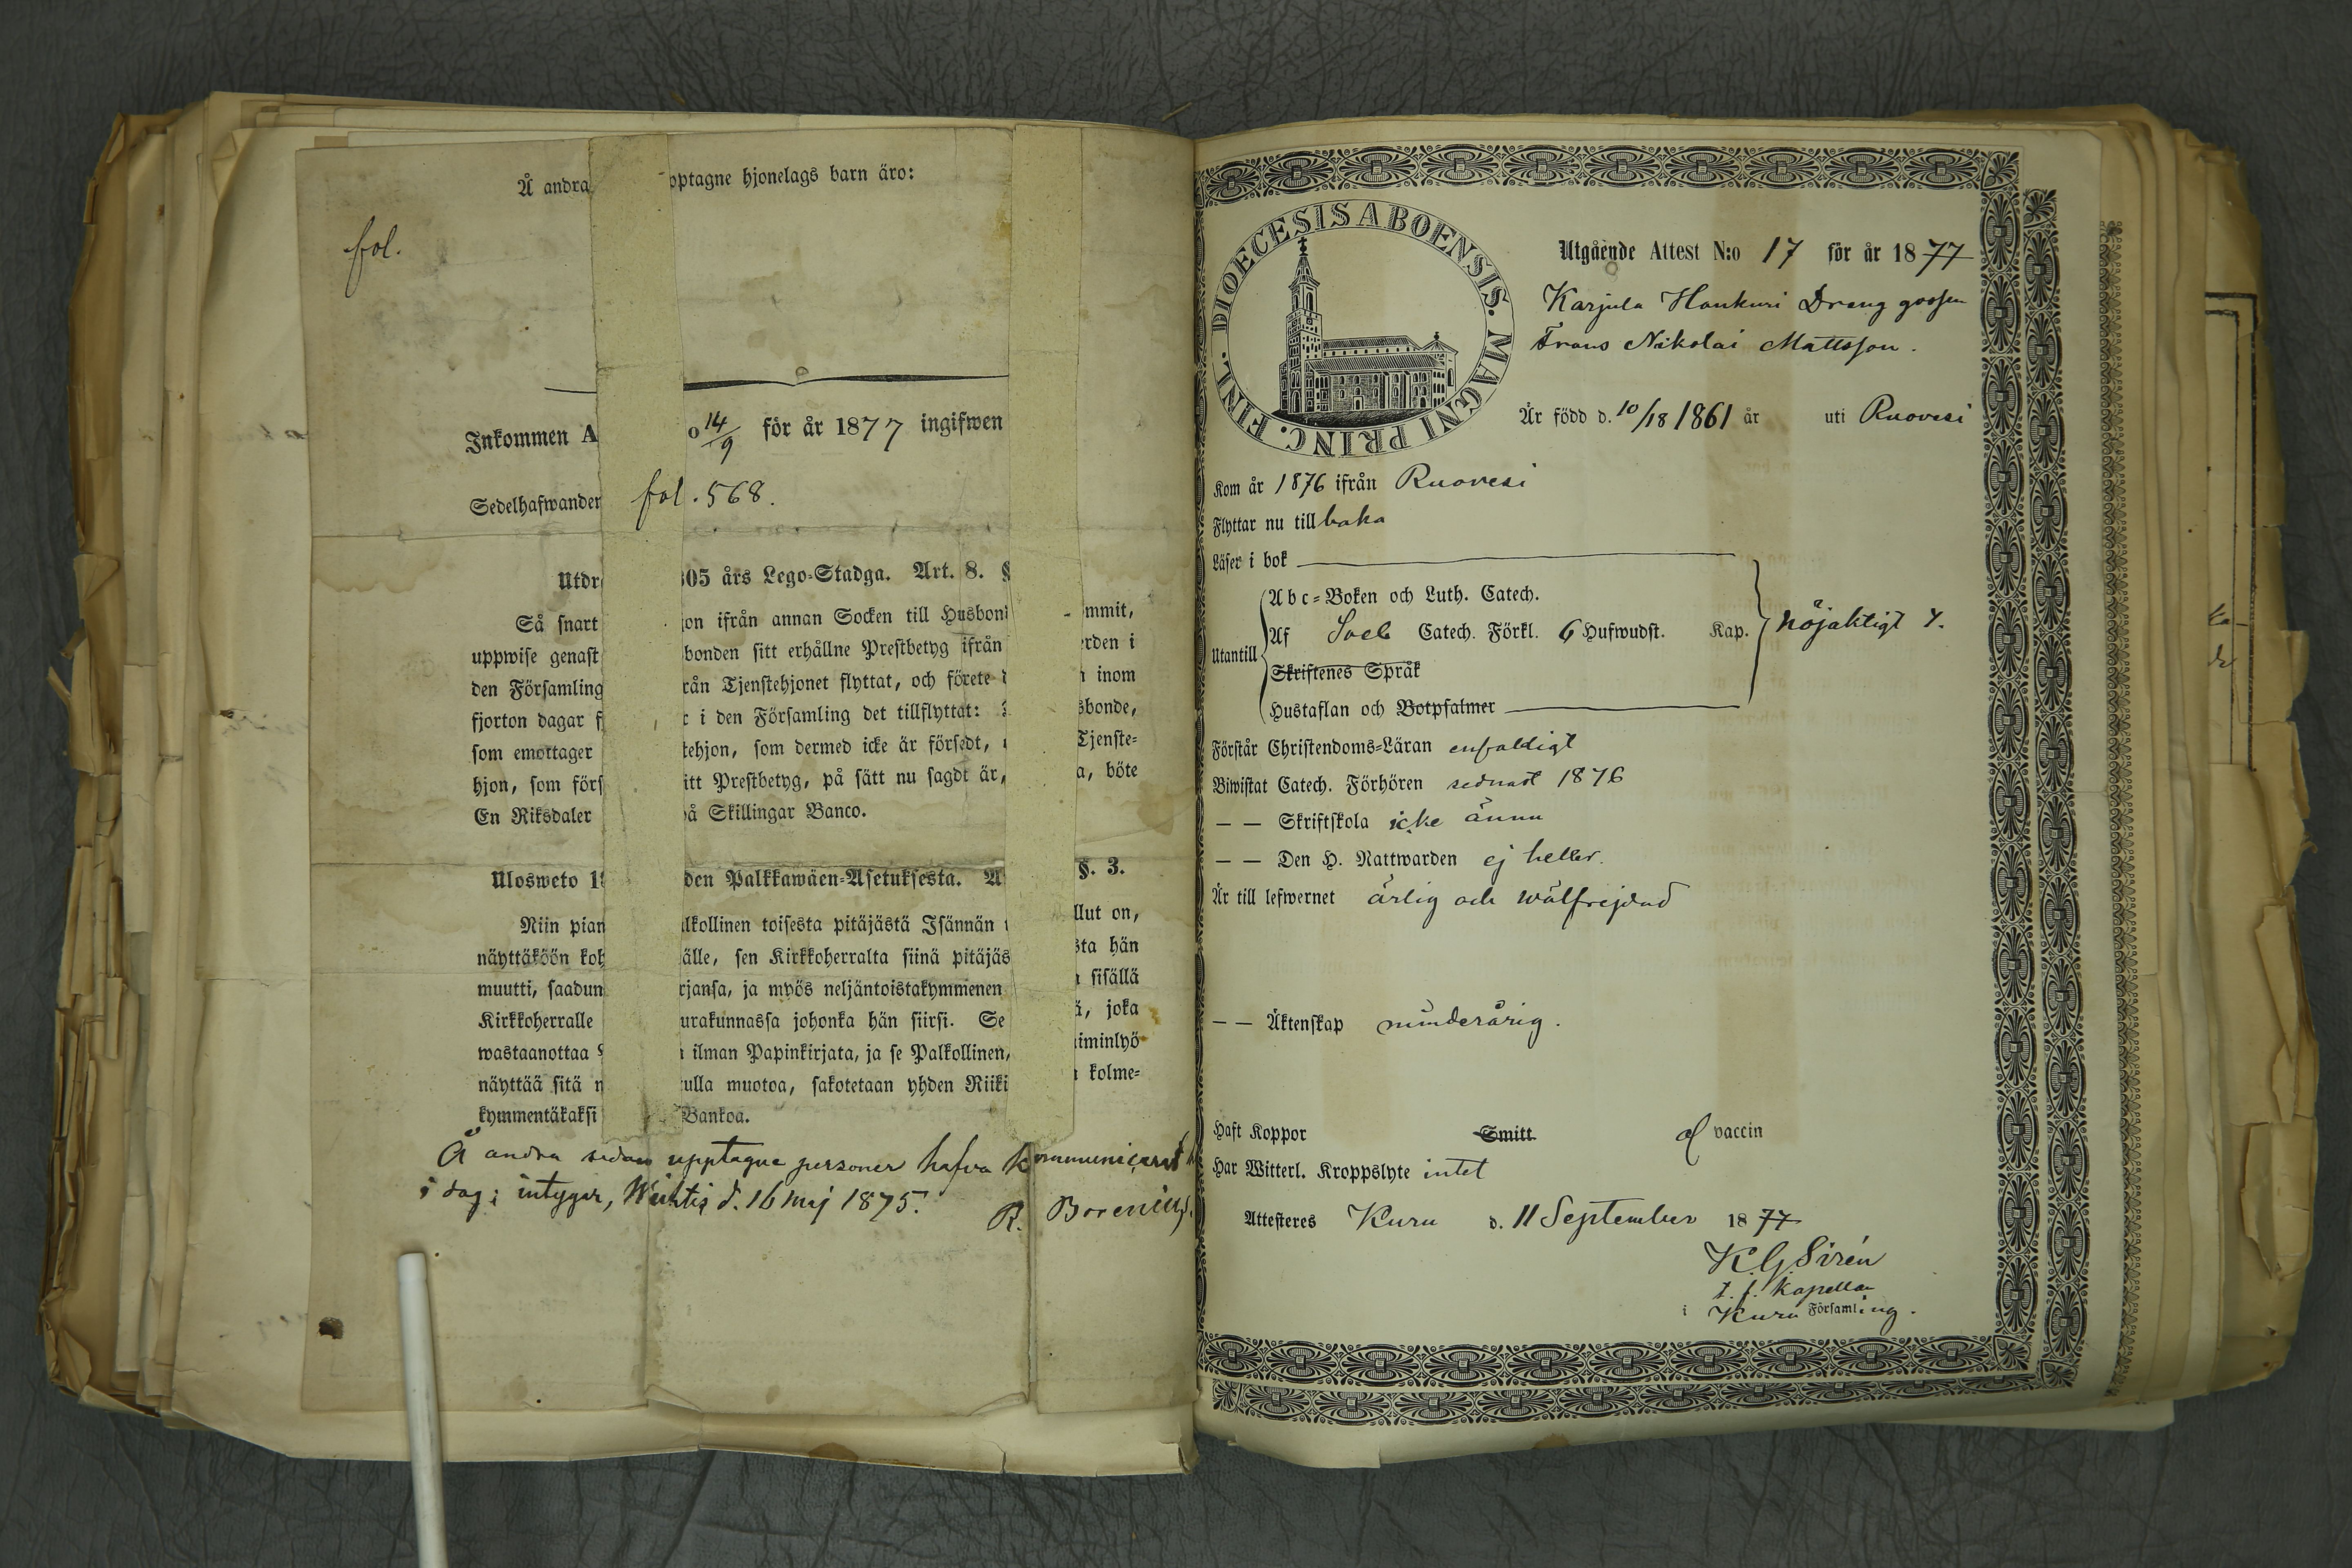 Å andra optagne hjonelags barn äro:
fol.
Inkommen A o 14/9 för år 1877 ingifwen
Sedelhafwander fol. 568.
Utdr 805 års Lego-Stadga. Art. 8. §
Så snart jon ifrån annan Socken till Husbond mmit,
uppwise genast bonden sitt erhållne Prestbetyg ifrån erden i
den Församling rån Tjenstehjonet flyttat, och förete inom
fjorton dagar f i den Församling det tillflyttat: sbonde,
som emottager tehjon, som dermed icke är försedt, Tjenste-
hjon, som förs itt Prestbetyg, på sätt nu sagdt är, a, böte
En Riksdaler å Skillingar Banco.
Ulosweto 18 den Palkkawäen-Asetuksesta. A §. 3.
Niin pian lkollinen toisesta pitäjästä Isännän llut on,
näyttäköön koh älle, sen Kirkkoherralta siinä pitäjäs sta hän
muutti, saadun rjansa, ja myös neljäntoistakymmenen sisällä
Kirkkoherralle urakunnassa johonka hän siirsi. Se ä, joka
wastaanottaa ilman Papinkirjata, ja se Palkollinen, iminlyö
näyttää sitä n tulla muotoa, sakotetaan yhden Riiki kolme-
kymmentäkaksi Bankoa.
Å andra sidan upptagne personer hafva kommunicerat
i dag; intygar, Wichtis d. 16 maj 1875.
R. Borenius.
DIOECESIS ABOENSIS. MAGNI PRINC. FINL.
Utgående Attest N:o 17 för år 1877
Karjula Honkuri Dreng gossen
Frans Nikolai Mattsson.
Är född d. 10/18 1861 år uti Ruovesi
Kom år 1876 ifrån Ruovesi
Flyttar nu till baka
Läser i bok
Abc-Boken och Luth. Catech.
Utantill Af Soeb Catech. Förkl. 6 Hufwudst. Kap. nöjaktigt
Skriftenes Språk
Hustaflan och Botpsalmer
Förstår Christendoms-Läran enfaldigt
Biwistat Catech. Förhören sednast 1876
— — Skriftskola icke ännu
— — Den H. Nattwarden ej heller.
Är till lefwernet ärlig och wälfrejdad
— — Äktenskap minderårig.
Haft Koppor Smitt vaccin
Har Witterl. Kroppslyte intet
Attesteres Kuru d. 11 September 1877
K. G. Sirén
t. f. Kapellan
i Kuru Församling.